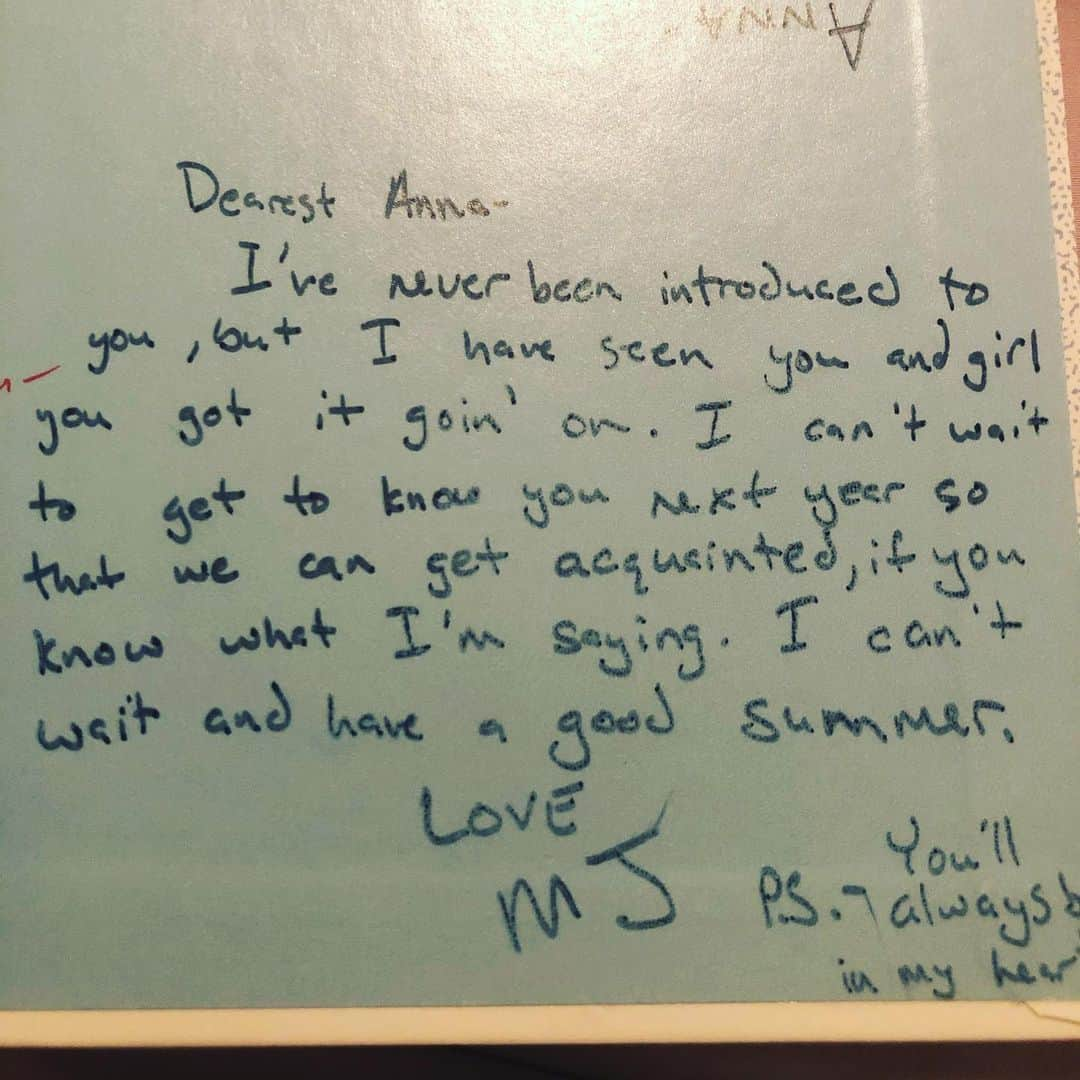 ANNA
Dearest Anna-
I've never been introduced to
you, but I have seen you and girl
you got it goin' on. I can't wait
to get to know you next year so
that we can get acquainted, if you
know what I'm saying. I can't
wait and have a good summer.
LOVE
MJ
P.S. → You'll
always b
in my hear